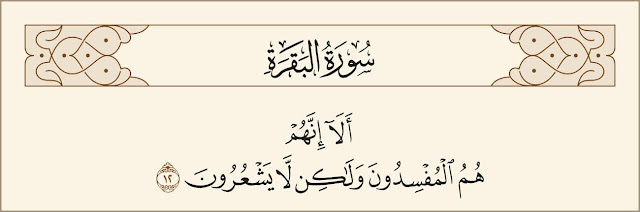 سُورَةُ البَقَرَةِ
أَلَآ إِنَّهُمۡ
هُمُ ٱلۡمُفۡسِدُونَ وَلَٰكِن لَّا يَشۡعُرُونَ ١٢